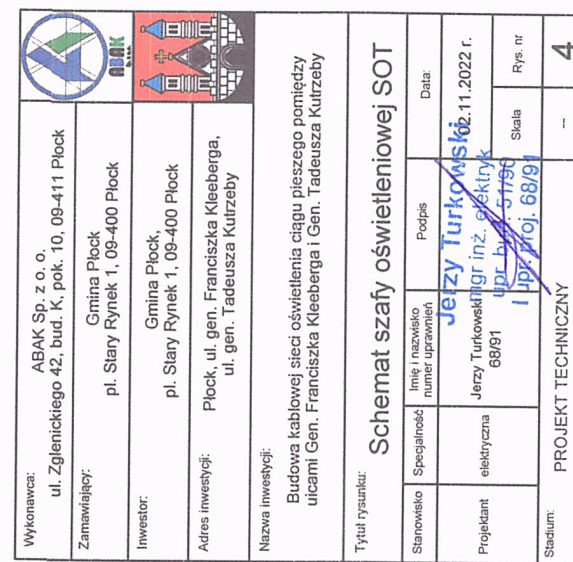 Wykonawca:
ABAK Sp. z o. o.
ul. Zglenickiego 42, bud. K, pok. 10, 09-411 Płock
ABAK
Zamawiający:
Gmina Płock
pl. Stary Rynek 1, 09-400 Płock
Inwestor:
Gmina Płock,
pl. Stary Rynek 1, 09-400 Płock
Adres inwestycji:
Płock, ul. gen. Franciszka Kleeberga,
ul. gen. Tadeusza Kutrzeby
Nazwa inwestycji:
Budowa kablowej sieci oświetlenia ciągu pieszego pomiędzy
ulcami Gen. Franciszka Kleeberga i Gen. Tadeusza Kutrzeby
Tytuł rysunku:
Schemat szafy oświetleniowej SOT
Stanowisko
Specjalność
Imię i nazwisko
numer uprawnień
Podpis
Data:
Projektant
elektryczna
Jerzy Turkowski
68/91
Jerzy Turkowski
mgr inż. elektryk
upr. bud. 51/90
upr. proj. 68/91
02.11.2022 r.
Skala
Rys. nr
Stadium:
PROJEKT TECHNICZNY
--
4